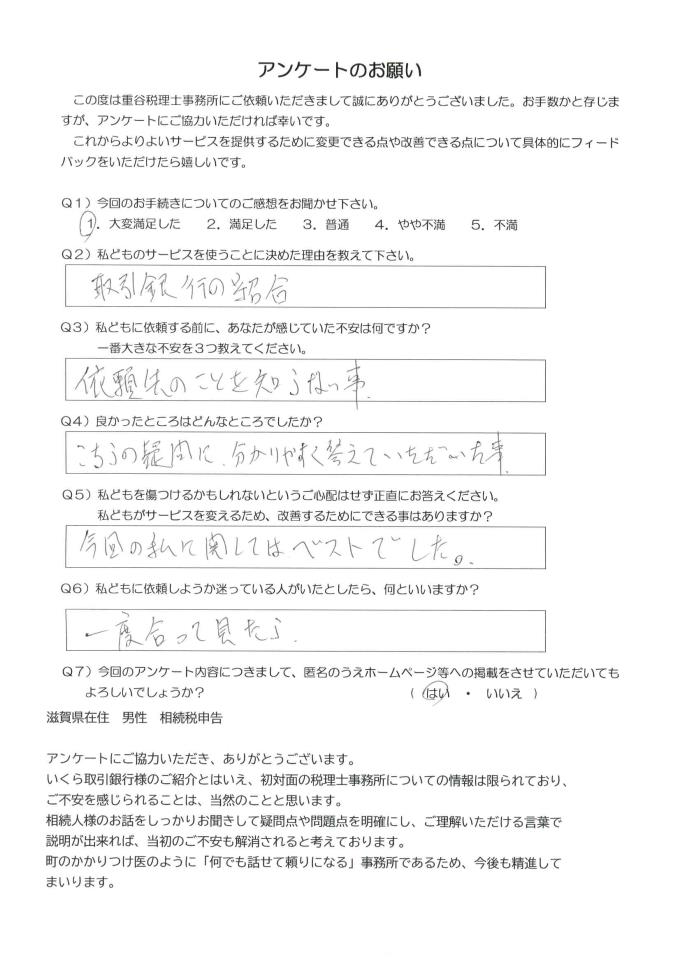 アンケートのお願い
この度は重谷税理士事務所にご依頼いただきまして誠にありがとうございました。お手数かと存じま
すが、アンケートにご協力いただければ幸いです。
これからよりよいサービスを提供するために変更できる点や改善できる点について具体的にフィード
バックをいただけたら嬉しいです。
Q1)今回のお手続きについてのご感想をお聞かせ下さい。
1．大変満足した　2．満足した　3．普通　4．やや不満　5．不満
Q2)私どものサービスを使うことに決めた理由を教えて下さい。
取引銀行の紹介
Q3)私どもに依頼する前に、あなたが感じていた不安は何ですか？
一番大きな不安を3つ教えてください。
依頼先のことを知らない事.
Q4)良かったところはどんなところでしたか？
こちらの疑問に、分かりやすく答えていただいた事.
Q5)私どもを傷つけるかもしれないというご心配はせず正直にお答えください。
私どもがサービスを変えるため、改善するためにできる事はありますか？
今回の私に関してはベストでした。
Q6)私どもに依頼しようか迷っている人がいたとしたら、何といいますか？
一度会って見たら.
Q7)今回のアンケート内容につきまして、匿名のうえホームページ等への掲載をさせていただいても
よろしいでしょうか？　（ はい ・ いいえ ）
滋賀県在住　男性　相続税申告
アンケートにご協力いただき、ありがとうございます。
いくら取引銀行様のご紹介とはいえ、初対面の税理士事務所についての情報は限られており、
ご不安を感じられることは、当然のことと思います。
相続人様のお話をしっかりお聞きして疑問点や問題点を明確にし、ご理解いただける言葉で
説明が出来れば、当初のご不安も解消されると考えております。
町のかかりつけ医のように「何でも話せて頼りになる」事務所であるため、今後も精進して
まいります。